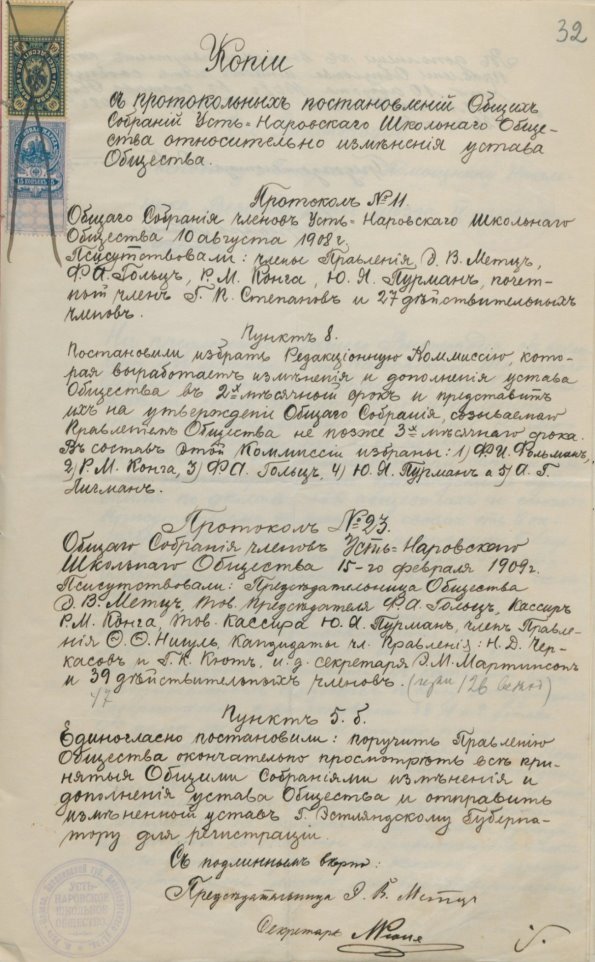 32
Копіи
съ протокольныхъ постановленій Общихъ
Собраній Усть=Наровскаго Школьнаго Обще-
ства относительно измѣненія устава
Общества.
Протоколъ № 11.
Общаго Собранія членовъ Усть=Наровскаго Школьнаго
Общества 10 августа 1908 г.
Присутствовали: члены Правленія, Э. В. Метцъ,
Ф. А. Гольцъ, Р. М. Конга, Ю. Я. Пурманъ, почет-
ный членъ Г. К. Степановъ и 27 дѣйствительныхъ
членовъ.
Пунктъ 8.
Постановили избрать Редакціонную Коммиссію, кото-
рая выработаетъ измѣненія и дополненія устава
Общества въ 2х мѣсячный срокъ и представитъ
ихъ на утвержденіи Общаго Собранія, созываемаго
Правленіемъ Общества не позже 3х мѣсячнаго срока.
Въ составъ этой Коммиссіи избраны: 1) Ф. И. Фольманъ,
2) Р. М. Конга, 3) Ф. А. Гольцъ, 4) Ю. Я. Пурманъ и 5) А. Г.
Личманъ.
Протоколъ № 23.
Общаго Собранія членовъ Усть=Наровскаго
Школьнаго Общества 15-го февраля 1909 г.
Присутствовали: Предсѣдательница Общества
Э. В. Метцъ, Тов. Предсѣдателя Ф. А. Гольцъ, Кассиръ
Р. М. Конга, Тов. Кассира Ю. Я. Пурманъ, членъ Правле-
нія Ѳ. Ѳ. Нигуль, Кандидаты чл. Правленія: Н. Д. Чер-
касовъ и Г. К. Кютъ, и. д. секретаря Э. М. Мартинсонъ
и 39 дѣйствительныхъ членовъ.
47
Пунктъ 5. б.
Единогласно постановили: поручить Правленію
Общества окончательно просмотрѣть всѣ при-
нятыя Общими Собраніями измѣненія и
дополненія устава Общества и отправить
измѣненной уставъ Г. Эстляндскому Губерна-
тору для регистраціи.
Съ подлиннымъ вѣрно:
Предсѣдательница Э. В. Метцъ
Секретарь
УСТЬ-
НАРОВСКОЕ
ШКОЛЬНОЕ
ОБЩЕСТВО